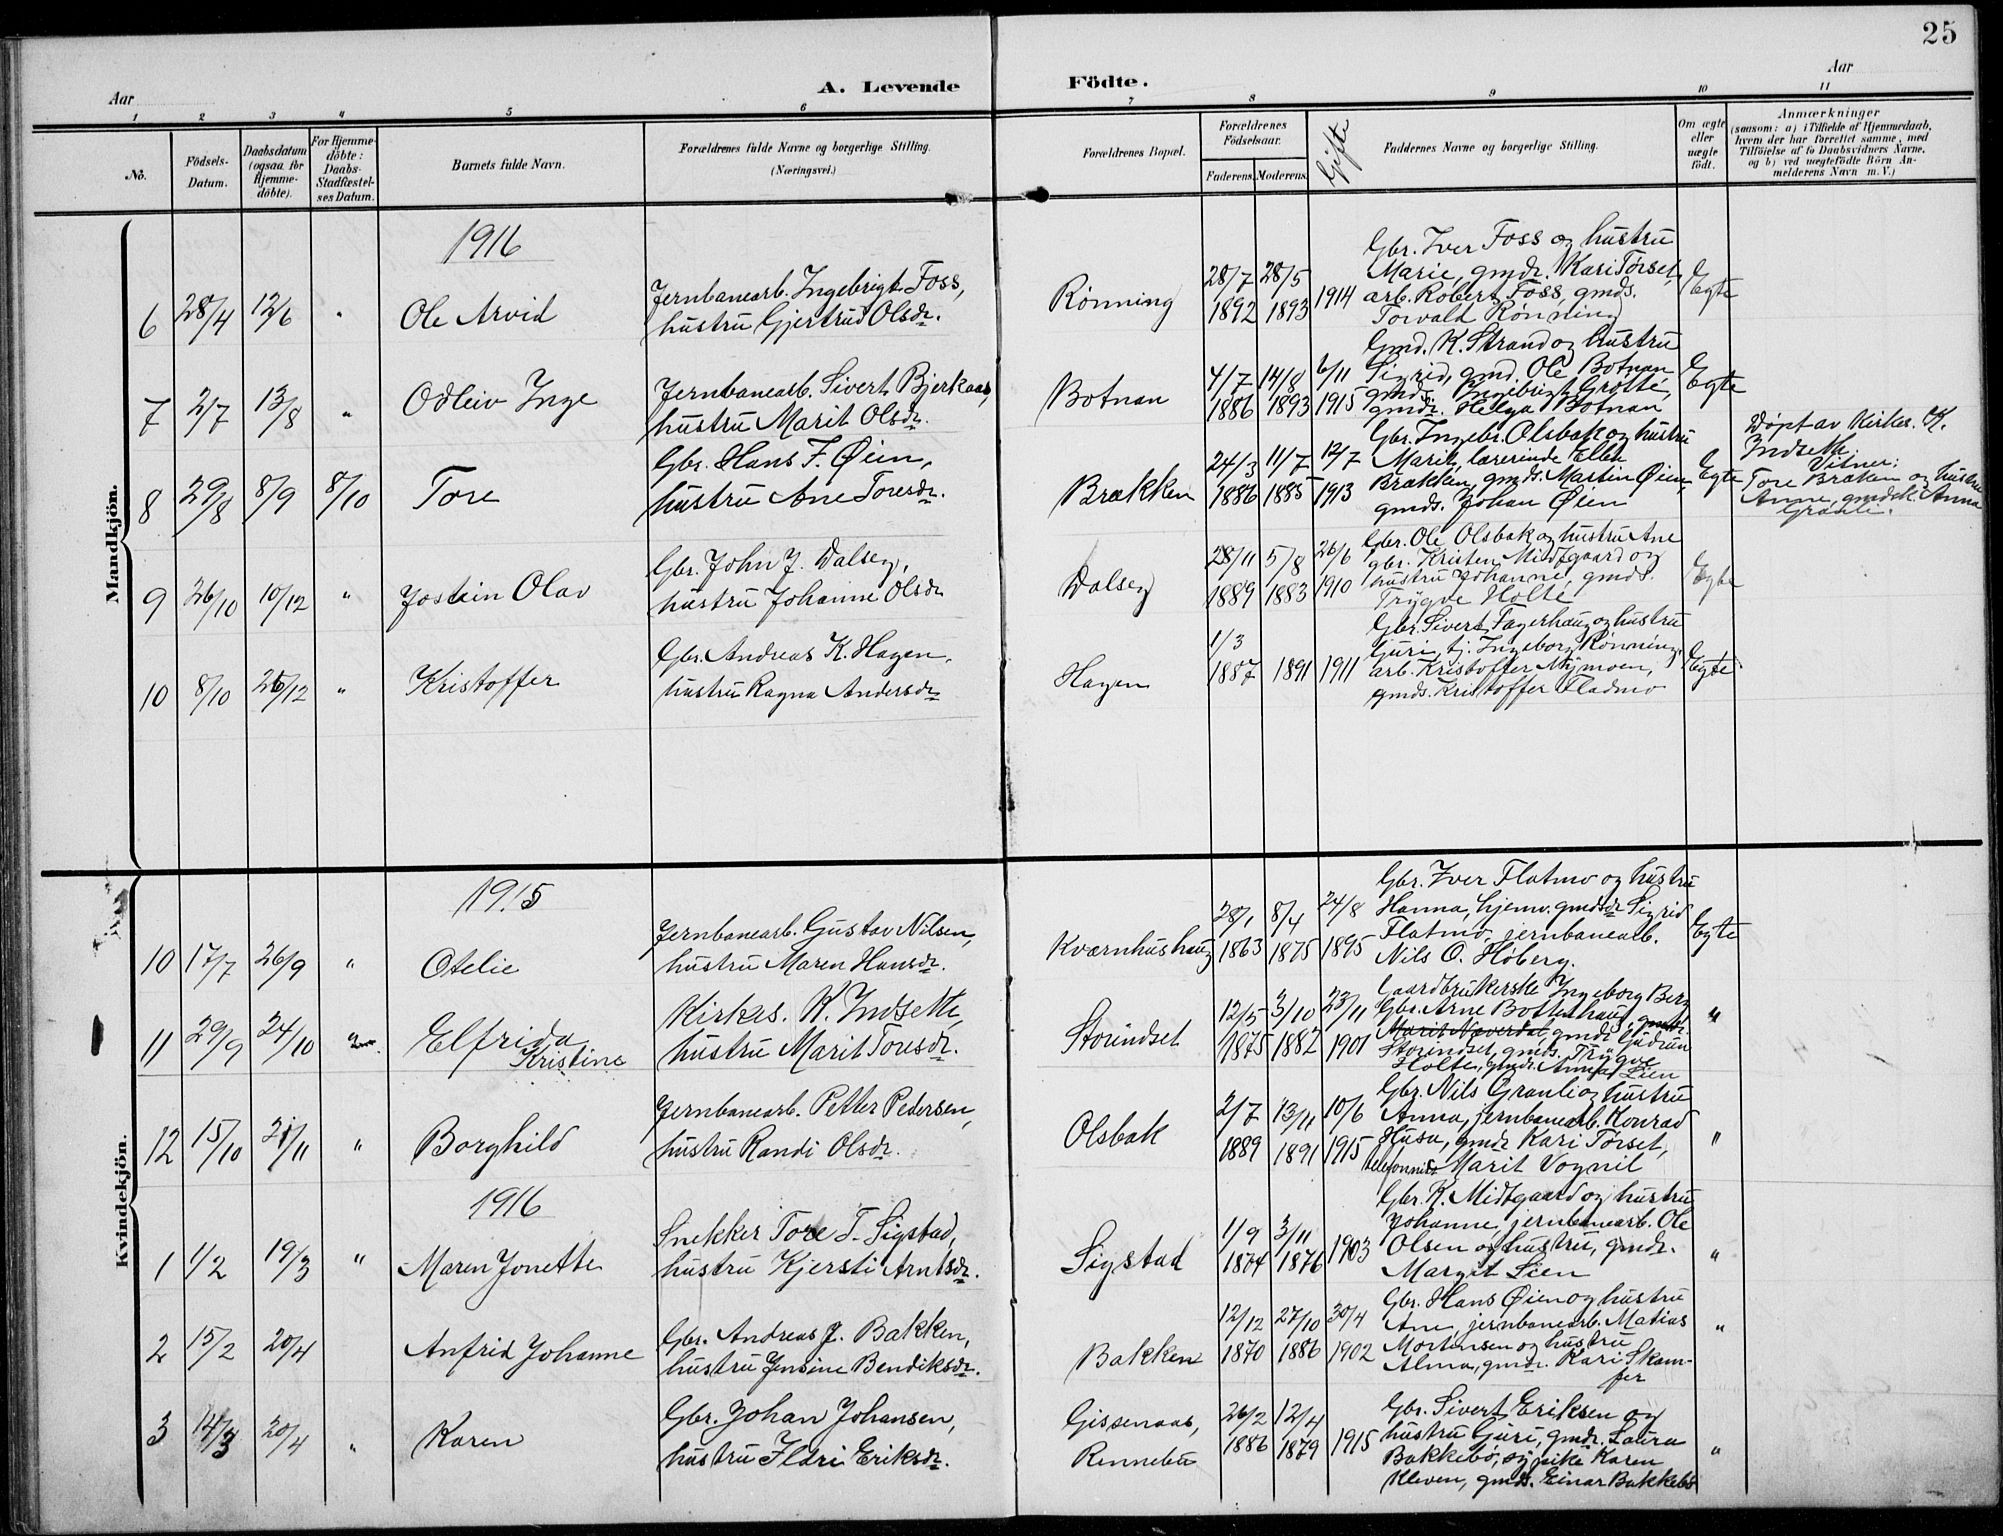 25
A. Levende Födte.
Aar
Aar
1 2 3 4 5 6 7 8 9 10 11
No.
Födsels-
Datum.
Daabsdatum
(ogsaa for
Hjemme-
döbte).
For Hjemme-
döbte:
Daabs-
Stadfæstel-
ses Datum.
Barnets fulde Navn.
Forældrenes fulde Navne og borgerlige Stilling.
(Næringsvei.)
Forældrenes Bopæl.
Forældrenes
Födselsaar.
Faderens. Moderens.
Gifte
Faddernes Navne og borgerlige Stilling.
Om ægte
eller
uægte
födt.
Anmærkninger
(saasom: a) i Tilfælde af Hjemmedaab,
hvem der har forrettet samme, med
Tilföielse af to Daabsvidners Navne,
og b) ved uægtefödte Börn An-
melderens Navn m. V.)
Mandkjön.
1916
6 28/4 12/6 " Ole Arvid
Jernbanearb. Ingebrigt Foss,
hustru Gjertrud Olsdr.
Rönning
28/7 28/5
1892 1893 1914
Gbr. Iver Foss og hustru
Marie, gmdr. Kari Törset,
arb. Robert Foss, gmds.
Torvald Rönning
Egte
7 2/7 13/8 " Odleiv Inge
Jernbanearb. Sivert Bjerkaas,
hustru Marit Olsdr.
Botnan
4/7 14/8 6/11
1886 1893 1915
Gmd. K. Strand og hustru
Sigrid, gmd. Ole Botnan,
gmds. Ingebrigt Grötte,
gmdr. Helga Botnan
Egte
8 29/8 8/9 8/10 Tore
Gbr. Hans F. Øien,
hustru Ane Toresdr.
Brækken
24/3 11/7 12/7
1886 1885 1913
Gbr. Ingebr. Olsbak og hustru
Marit, lærerinde Ellen
Brækken, gmds. Martin Øien,
gmds. Johan Øien
Egte
Døpt av Kirkes. K.
Indsette
Vitner:
Tore Bræken og hustru
Anne, gmdsk. Anna
Granli.
9 26/10 10/12 " Jostein Olav
Gbr. John J. Dalseg,
hustru Johanne Olsdr
Dalseg
28/11 5/8 26/6
1889 1883 1910
Gbr. Ole Olsbak og hustru Ane
gbr. Kristen Midtgaard og
hustru Johanne, gmds.
Trygve Holte
Egte
10 8/10 26/12 " Kristoffer
Gbr. Andreas K. Hagen,
hustru Ragna Andersdr
Hagen
1/3
1887 1891 1911
Gbr. Sivert Fagerhaug og hustru
Guri, tj. Ingeborg Rönning,
arb. Kristoffer Nymoen,
gmds. Kristoffer Fladmo
Egte
Kvindekjön.
1915
10 17/7 26/9 " Otelie
Jernbanearb. Gustav Nilsen,
hustru Maren Hansdr.
Kværnhushaug
28/1 8/4 24/8
1863 1875 1895
Gbr. Iver Flatmo og hustru
Hanna, hjemv. gmdsdr Sigrid
Flatmo, jernbanearb.
Nils O. Höberg.
Egte
11 29/9 24/10 Elfrida
Kristine
Kirkes. K. Indsette,
hustru Marit Toresdr.
Storindset
12/5 3/10 23/11
1875 1882 1901
Gaardbrukerske Ingeborg Berg
Gbr. Arne Bottenhaug, gmdr.
Marit Næverdal, gmdr Gudrun
Storindset, gmds. Trygve
Holte, gmdr. Anna Lien
"
12 15/10 21/11 " Borghild
Jernbanearb. Petter Pedersen,
hustru Randi Olsdr.
Olsbak
2/7 13/11 10/6
1889 1891 1915
Gbr. Nils Granli og hustru
Anna, jernbanearb. Konrad
Husa, gmdr Kari Törset,
telefonnist Marit Vognil
"
1916
1 1/2 19/3 " Maren Jonette
Snekker Tore T. Sigstad,
hustru Kjersti Arntsdr.
Sigstad
1/9 3/11
1874 1876 1903
Gbr. K. Midtgaard og hustru
Johanne, jernbanearb. Ole
Olsen og hustru, gmdr.
Margit Lien
"
2 15/2 20/4 Anfrid Johanne
Gbr. Andreas J. Bakken,
hustru Jensine Bendiksdr.
Bakken
12/12 27/10 30/4
1870 1886 1902
Gbr. Hans Øien og hustru
Ane, jernbanearb. Matias
Mortensen og hustru
Alma, gmdr. Kari Skam-
fer
"
3 14/3 20/4 " Karen
Gbr. Johan Johansen,
hustru Ildri Eriksdr.
Gissenaas,
Rennebu
26/2 12/4
1886 1879 1915
Gbr. Sivert Eriksen og
hustru Guri, gmdr. Laura
Bakkebö, sypike Karen
Kleven, gmds. Einar Bakkebö
"